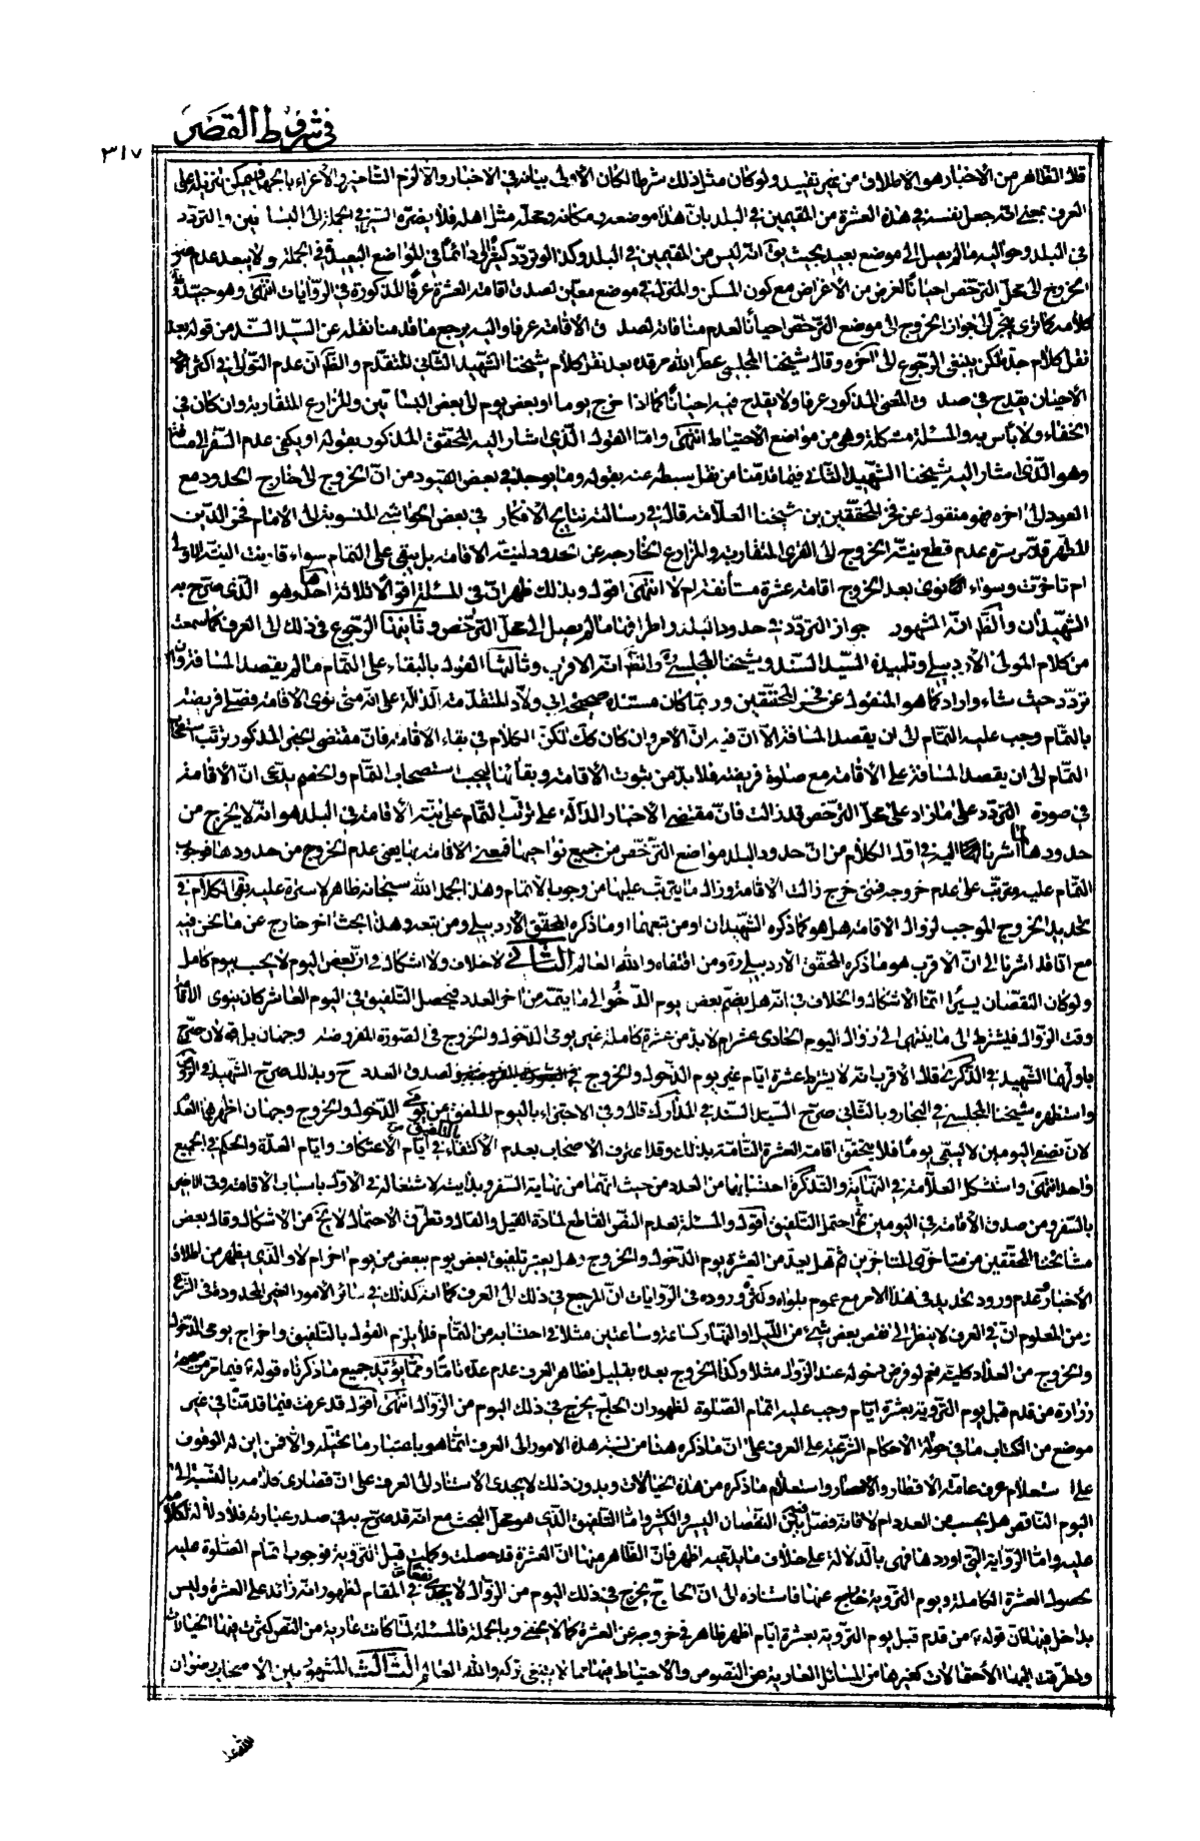 في شروط القصر
٣١٧
قلا الظاهر من الأخبار هو الاطلاق من غير تقييد ولو كان مثل ذلك شرطا لكان الأولى بيانه في الاخبار والا لزم التاخير والأغراء بالجهل فيمكن تنزيله على
العرف بمعنى انه جعل نفسه في هذه العشرة من المقيمين في البلد بان هذا موضعه ومكانه ومحله مثل اهله فلا يضره السير في الجملة الى البساتين والتردد
في البلد وحواليه ما لم يصل الى موضع بعيد بحيث يق انه ليس من المقيمين في البلد وكذا لو تردد كثيرا دائما في المواضع البعيدة في الجملة ولا يبعد عدم ضرر
الخروج الى محل الترخص احيانا لغرض من الأغراض مع كون المسكن والمنزل في موضع معين لصدق اقامة العشرة عرفا المذكورة في الروايات انتهى وهو جيد
كلامه كما ترى ينجر الى جواز الخروج الى موضع الترخص احيانا لعدم منافاته لصدق الاقامة عرفا واليه يرجع ما قدمنا نقله عن السيد السند من قوله بعد
نقل كلام جده لكن ينبغى الرجوع الى اخره وقال شيخنا المجلسي عطر الله مرقده بعد نقل كلام شيخنا الشهيد الثاني المتقدم والظ ان عدم التوالى في اكثر
الأحيان يقدح في صدق المعنى المذكور عرفا ولا يقدح فيه احيانا كما اذا خرج يوما او بعض يوم الى بعض البساتين والمزارع المتقاربة وان كان في
الخفاء ولا باس به والمسئلة مشكلة وهي من مواضع الاحتياط انتهى واما القول الذى اشار اليه المحقق المذكور بقوله او يكفى عدم السفر الى مسافة
وهو الذى اشار اليه شيخنا الشهيد الثاني فيما قدمنا من نقل بسطه عنه بقوله وما يوجد في بعض القيود من ان الخروج الى خارج الحدود مع
العود الى اخره فهو منقول عن فخر المحققين بن شيخنا العلامة قال في رسالته نتايج الافكار في بعض الحواشي المنسوبة الى الامام فخر الدين
المطهر قدس سره عدم قطع نية الخروج الى القرى المتقاربة والمزارع الخارجة عن الحدود لنية الاقامة بل يبقى على التمام سواء قارنت النية الاولى
ام تاخرت وسواء نوى بعد الخروج اقامة عشرة مستأنفة ام لا انتهى اقول وبذلك ظهر ان في المسئلة اقوالا ثلاثة احدها وهو الذى صرح به
الشهيدان والظ انه المشهور جواز التردد في حدود البلد واطرافها ما لم يصل الى محل الترخص وثانيها الرجوع في ذلك الى العرف كما سمعت
من كلام المولى الأردبيلي وتلميذه السيد السند وشيخنا المجلسي والظ انه الاقرب وثالثها القول بالبقاء على التمام ما لم يقصد المسافة وان
تردد حيث شاء واراد كما هو المنقول عن فخر المحققين وربما كان مستنده صحيحة ابي ولاد المتقدمة الدالة على انه متى نوى الاقامة فصلى فريضة
بالتمام وجب عليه التمام الى ان يقصد المسافة الا ان فيه ان الامر وان كان كك لكن الكلام في بقاء الاقامة فان مقتضى الخبر المذكور ترتب استصحاب
التمام الى ان يقصد المسافة على الأقامة مع صلوة فريضة فلا بد من ثبوت الاقامة وبقائها ليجب استصحاب التمام والخصم يدعى ان الاقامة
في صورة التردد على ما زاد على محل الترخص قد زالت فان مقتضى الاخبار الدالة على ترتب التمام على نية الأقامة في البلد هو انه لا يخرج من
حدودها لما اشرنا اليه في اول الكلام من ان حدود البلد مواضع الترخص من جميع نواحيها فمعنى الاقامة بها يعنى عدم الخروج من حدودها فوجوب
التمام عليه مترتب على عدم خروجه فمتى خرج زالت الاقامة وزال ما يترتب عليها من وجوب الاتمام وهذا بحمد الله سبحانه ظاهر لا سترة عليه بقى الكلام في
تحديد الخروج الموجب لزوال الاقامة هل هو كما ذكره الشهيدان او من تبعهما او ما ذكره المحقق الأردبيلي ومن تبعه وهذا بحث اخر خارج عن ما نحن فيه
مع انا قد اشرنا الى ان الاقرب هو ما ذكره المحقق الأردبيلي ره ومن اقتفاه والله العالم الثاني لا خلاف ولا اشكال في ان بعض اليوم لا يحسب بيوم كامل
ولو كان النقصان يسيرا انما الاشكال والخلاف في انه هل يضم بعض يوم الدخول الى ما يتمه من اخر العدد فيحصل التلفيق في اليوم العاشر كان ينوى الأقامة
وقت الزوال فيشترط الى ما ينتهى الى زوال اليوم الحادى عشر ام لا بد من عشرة كاملة غير يومى الدخول والخروج في الصورة المفروضة وجهان بل قولان صرح
باولهما الشهيد في الذكرى قال الاقرب انه لا يشترط عشرة ايام غير يوم الدخول والخروج لصدق العدد ح وبذلك صرح الشهيد في الروض
واستظهره شيخنا المجلسي في البحار وبالثاني صرح السيد السند في المدارك قال وفى الاجتزاء باليوم الملفق من يومى الدخول والخروج وجهان اظهرهما العدم
لان نصفى اليومين لا يسمى يوما فلا يتحقق اقامة العشرة التامة بذلك وقد اعترف الاصحاب بعدم الاكتفاء بالتلفيق في ايام الاعتكاف وايام العدة والحكم في الجميع
واحد انتهى واستشكل العلامة في النهاية والتذكرة احتسابهما من العدد من حيث انهما من نهاية السفر وبدايته لاشتغاله في الأول باسباب الاقامة وفي الاخير
بالسفر ومن صدق الاقامة في اليومين ثم احتمل التلفيق اقول والمسئلة لعدم النص القاطع لمادة القيل والقال وتطرق الاحتمال لا تخ من الاشكال وقال بعض
مشائخنا المحققين من متاخرى المتاخرين ثم هل يعد من العشرة يوم الدخول والخروج وهل يعتبر تلفيق بعض يوم ببعض من يوم اخر ام لا والذى يظهر من اطلاق
الأخبار وعدم ورود تحديد في هذا الامر مع عموم بلواه وكثرة وروده في الروايات ان المرجع في ذلك الى العرف كما انه كذلك في سائر الأمور الغير المحدودة في الشرع
ومن المعلوم ان في العرف لا ينظر الى نقص بعض شيء من الليل او النهار كساعة وساعتين مثلا في احتسابه من التمام فلا يلزم القول بالتلفيق واخراج يومى الدخول
والخروج من العدد كلية نعم لو فرض دخوله عند الزوال مثلا وكذا الخروج بعده بقليل فظاهر العرف عدم عده تاما ومما يؤيد جميع ما ذكرناه قوله ع فيما مر في صحيحة
زرارة من قدم قبل يوم التروية بعشرة ايام وجب عليه اتمام الصلوة لظهور ان الحاج يخرج في ذلك اليوم من الزوال انتهى اقول قد عرفت فيما قدمنا في غير
موضع من الكتاب ما في حوالة الأحكام الشرعية على العرف على ان ما ذكره هنا من نسبة هذه الامور الى العرف انما هو باعتبار ما تخيله والا فمن اين له الوقوف
على استعلام عرف عامة الاقطار والامصار واستعلام ما ذكره من هذه الخيالات وبدون ذلك لا يجدى الاستناد الى العرف على ان قصارى كلامه بالنسبة الى
اليوم الناقص هل يحسب من العدد ام لا فانه فصل بين النقصان اليسير والكثير واما التلفيق الذى هو محل البحث مع انه قد صرح به في صدر عبارته فلا دلالة لكلامه
عليه واما الرواية التي اوردها فهي بالدلالة على خلاف ما يدعيه اظهر فان الظاهر منها ان العشرة قد حصلت وكملت قبل التروية فوجوب اتمام الصلوة عليه
لحصول العشرة الكاملة ويوم التروية خارج عنها فاستناده الى ان الحاج يخرج في ذلك اليوم من الزوال لا يجدى نفعا في المقام لظهور انه زائد على العشرة وليس
بداخل فيها فان قوله ع من قدم قبل يوم التروية بعشرة ايام اظهر ظاهر في خروجه عن العشرة كما لا يخفى وبالجملة فالمسئلة لما كانت عارية من النص كثرت فيها الخيالات
وتطرقت اليها الأحتمالات كغيرها من المسائل العارية عن النصوص والاحتياط فيها مما لا ينبغى تركه والله العالم الثالث المشهور بين الاصحاب رضوان
الله عليه